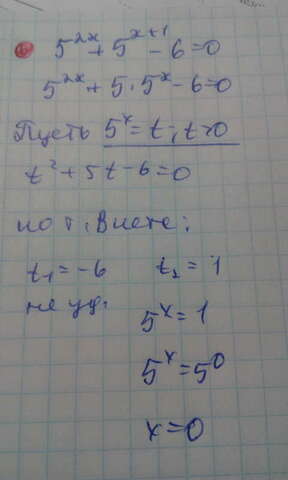 5^{2x} + 5^{x+1} - 6 = 0
5^{2x} + 5 · 5^x - 6 = 0
Пусть 5^x = t, t > 0
t² + 5t - 6 = 0
по т. Виета:
t₁ = -6 t₂ = 1
не уд.
5^x = 1
5^x = 5^0
x = 0